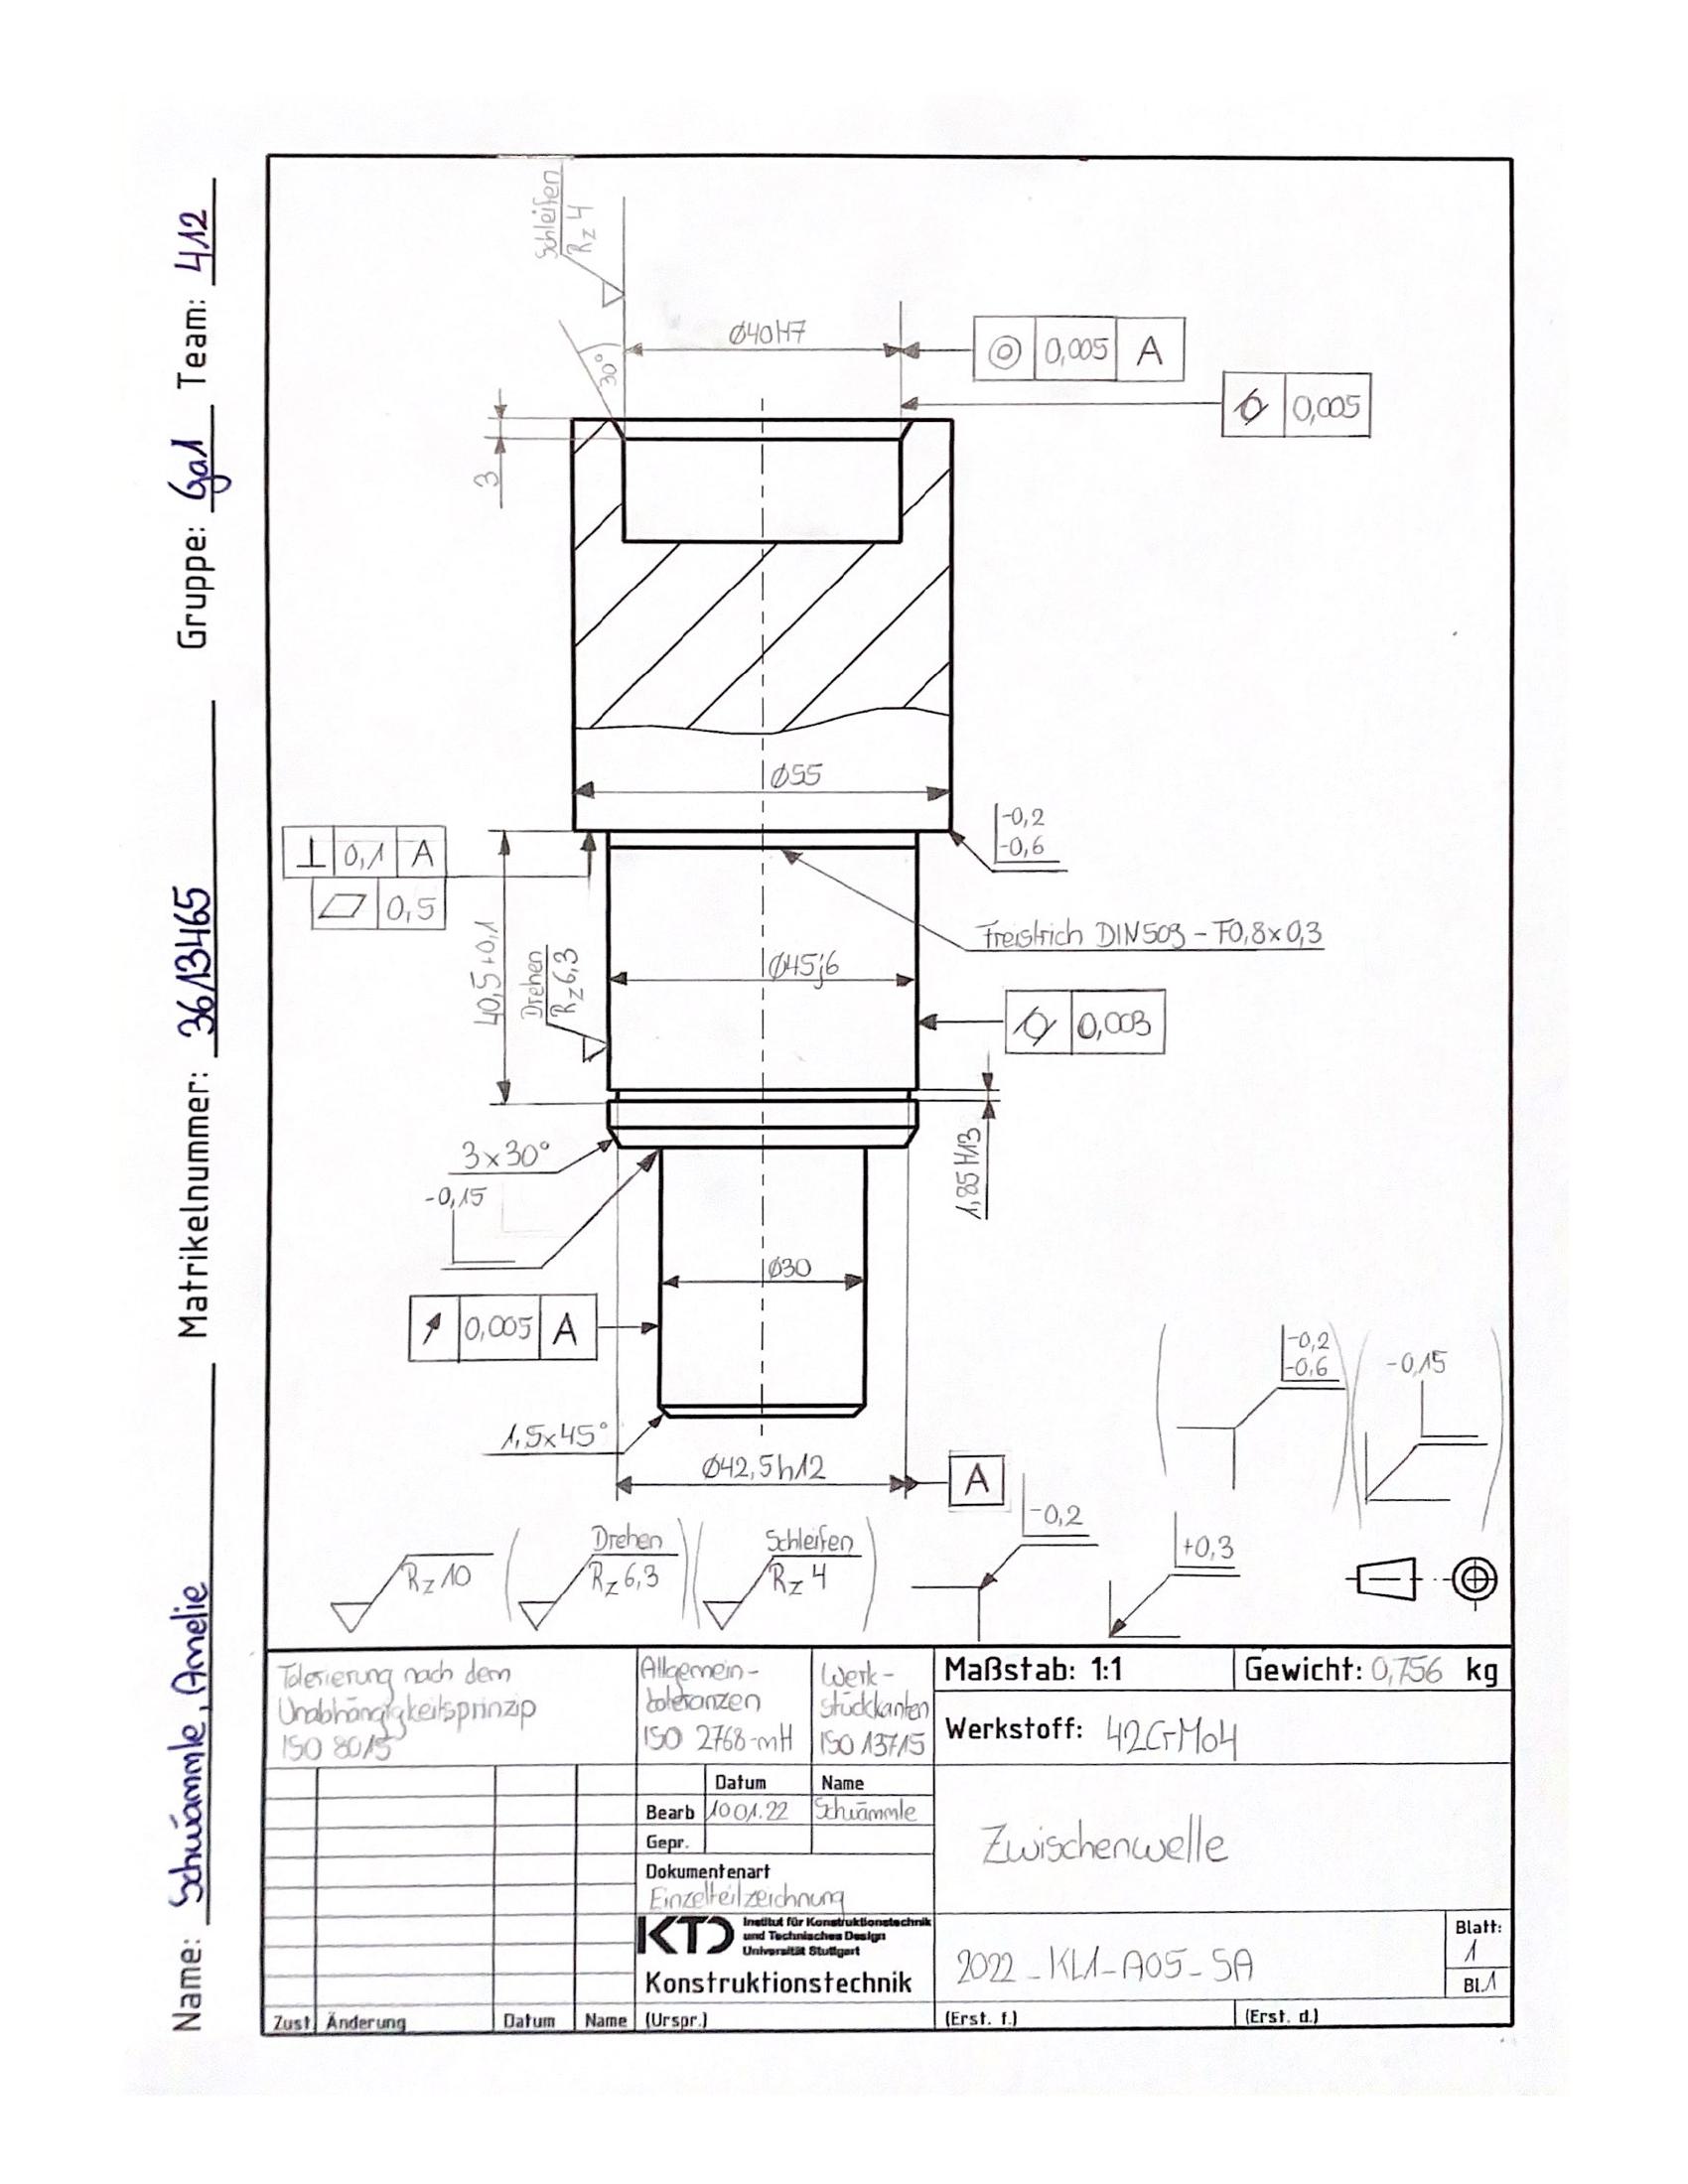 Name: Schwämmle, Amelie Matrikelnummer: 3613465 Gruppe: Ga1 Team: 412
Schleifen
Rz 4
30°
Ø40H7
◎ 0,005 A
⌭ 0,005
3
Ø55
-0,2
-0,6
⊥ 0,1 A
⏥ 0,5
40,5+0,1
Drehen
Rz 6,3
Freistrich DIN 509 - F0,8x0,3
Ø45j6
⌭ 0,003
3x30°
-0,15
1,85 H13
Ø30
↗ 0,005 A
1,5x45°
Ø42,5h12
A
-0,2
-0,6
-0,15
Rz 10
Drehen
Rz 6,3
Schleifen
Rz 4
-0,2
+0,3
Tolerierung nach dem
Unabhängigkeitsprinzip
ISO 8015
Allgemein-
toleranzen
ISO 2768-mH
Werk-
stückkanten
ISO 13715
Maßstab: 1:1
Gewicht: 0,756 kg
Werkstoff: 42CrMo4
Datum Name
Bearb 10 01.22 Schwämmle
Gepr.
Dokumentenart
Einzelteilzeichnung
Zwischenwelle
KTD Institut für Konstruktionstechnik
und Technisches Design
Universität Stuttgart
Konstruktionstechnik
2022_KL1_A05_SA
Blatt:
1
Bl.1
Zust Änderung Datum Name (Urspr.) (Erst. f.) (Erst. d.)